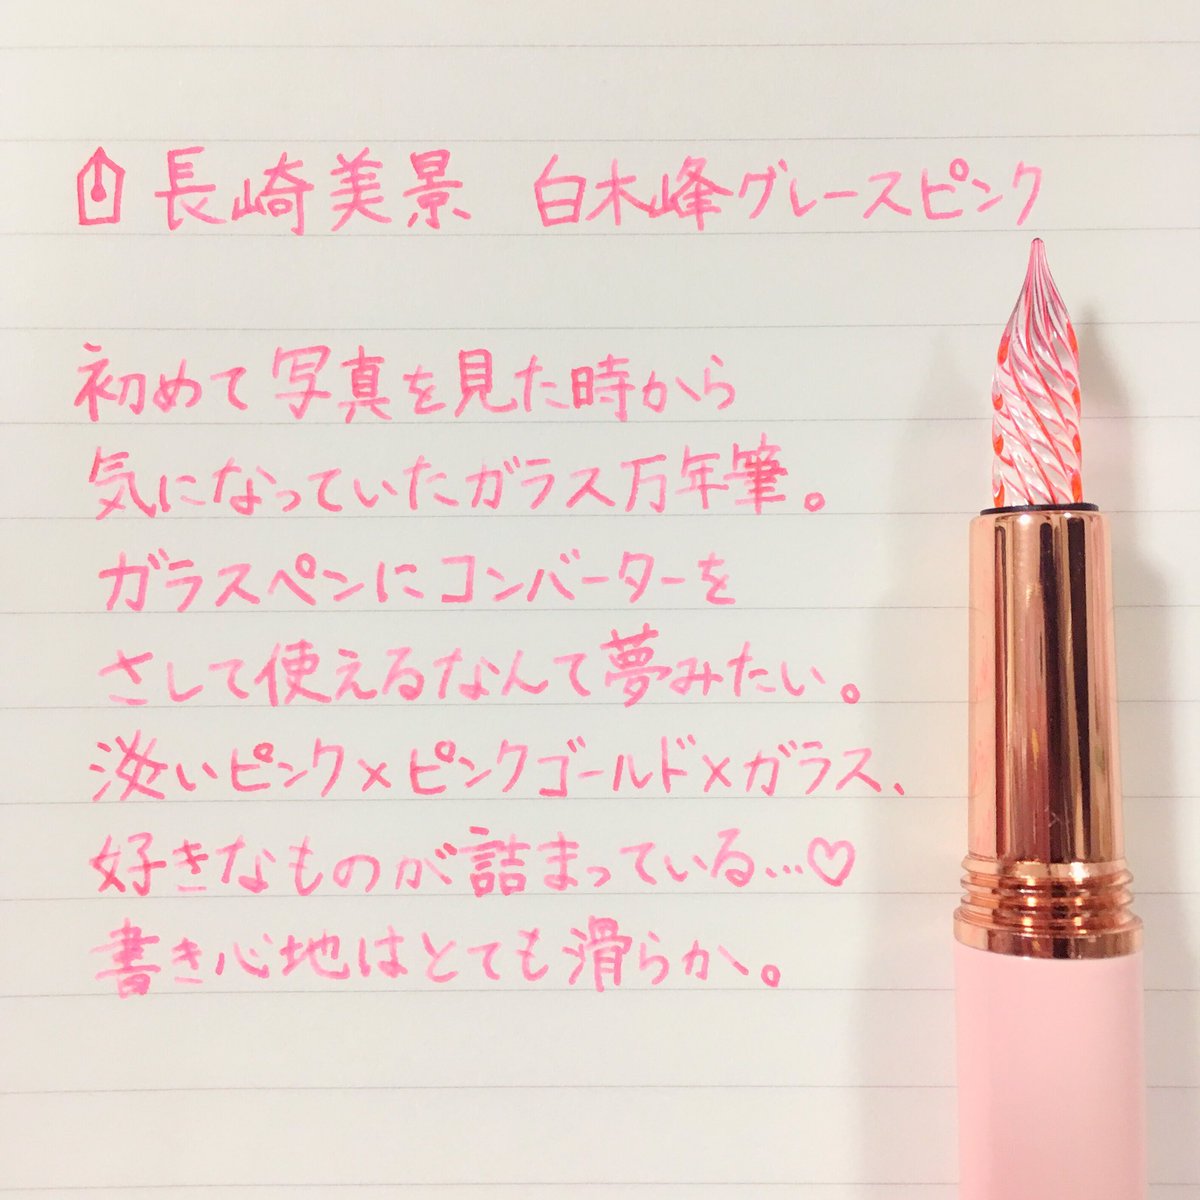 長崎美景 白木峰グレースピンク
初めて写真を見た時から
気になっていたガラス万年筆。
ガラスペンにコンバーターを
さして使えるなんて夢みたい。
淡いピンク×ピンクゴールド×ガラス、
好きなものが詰まっている…♡
書き心地はとても滑らか。